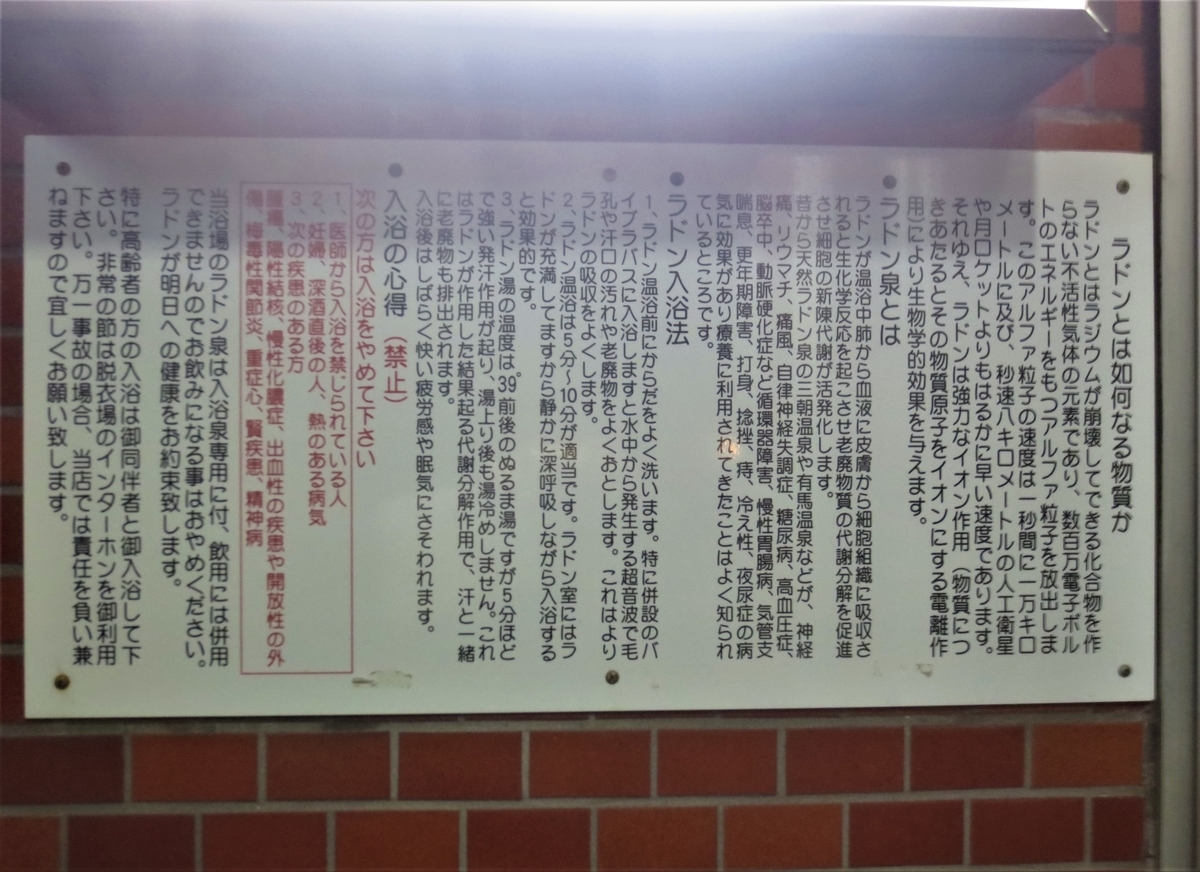 ラドンとは如何なる物質か
ラドンとはラジウムが崩壊してできる化合物を作
らない不活性気体の元素であり、数百万電子ボル
トのエネルギーをもつアルファ粒子を放出しま
す。このアルファ粒子の速度は一秒間に一万キロ
メートルに及び、秒速八キロメートルの人工衛星
や月ロケットよりもはるかに早い速度であります。
それゆえ、ラドンは強力なイオン作用（物質につ
きあたるとその物質原子をイオンにする電離作
用）により生物学的効果を与えます。
●ラドン泉とは
ラドンが温浴中肺から血液に皮膚から細胞組織に吸収さ
れると生化学反応を起こさせ老廃物質の代謝分解を促進
させ細胞の新陳代謝が活発化します。
昔から天然ラドン泉の三朝温泉や有馬温泉などが、神経
痛、リウマチ、痛風、自律神経失調症、糖尿病、高血圧症、
脳卒中、動脈硬化症など循環器障害、慢性胃腸病、気管支
喘息、更年期障害、打身、捻挫、痔、冷え性、夜尿症の病
気に効果があり療養に利用されてきたことはよく知られ
ているところです。
●ラドン入浴法
1、ラドン温浴前にからだをよく洗います。特に併設のバ
イブラバスに入浴しますと水中から発生する超音波で毛
孔や汗口の汚れや老廃物をよくおとします。これはより
ラドンの吸収をよくします。
2、ラドン温浴は5分〜10分が適当です。ラドン室にはラ
ドンが充満してますから静かに深呼吸しながら入浴する
と効果的です。
3、ラドン湯の温度は39°前後のぬるま湯ですが5分ほど
で強い発汗作用が起り、湯上り後も湯冷めしません。これ
はラドンが作用した結果起る代謝分解作用で、汗と一緒
に老廃物も排出されます。
入浴後はしばらく快い疲労感や眠気にさそわれます。
●入浴の心得（禁止）
次の方は入浴をやめて下さい
1、医師から入浴を禁じられている人
2、妊婦、深酒直後の人、熱のある病気
3、次の疾患のある方
腫瘍、陽性結核、慢性化膿症、出血性の疾患や開放性の外
傷、梅毒性関節炎、重症心、腎疾患、精神病
当浴場のラドン泉は入浴泉専用に付、飲用には併用
できませんのでお飲みになる事はおやめください。
ラドンが明日への健康をお約束致します。
特に高齢者の方の入浴は御同伴者と御入浴して下
さい。非常の節は脱衣場のインターホンを御利用
下さい。万一事故の場合、当店では責任を負い兼
ねますので宜しくお願い致します。